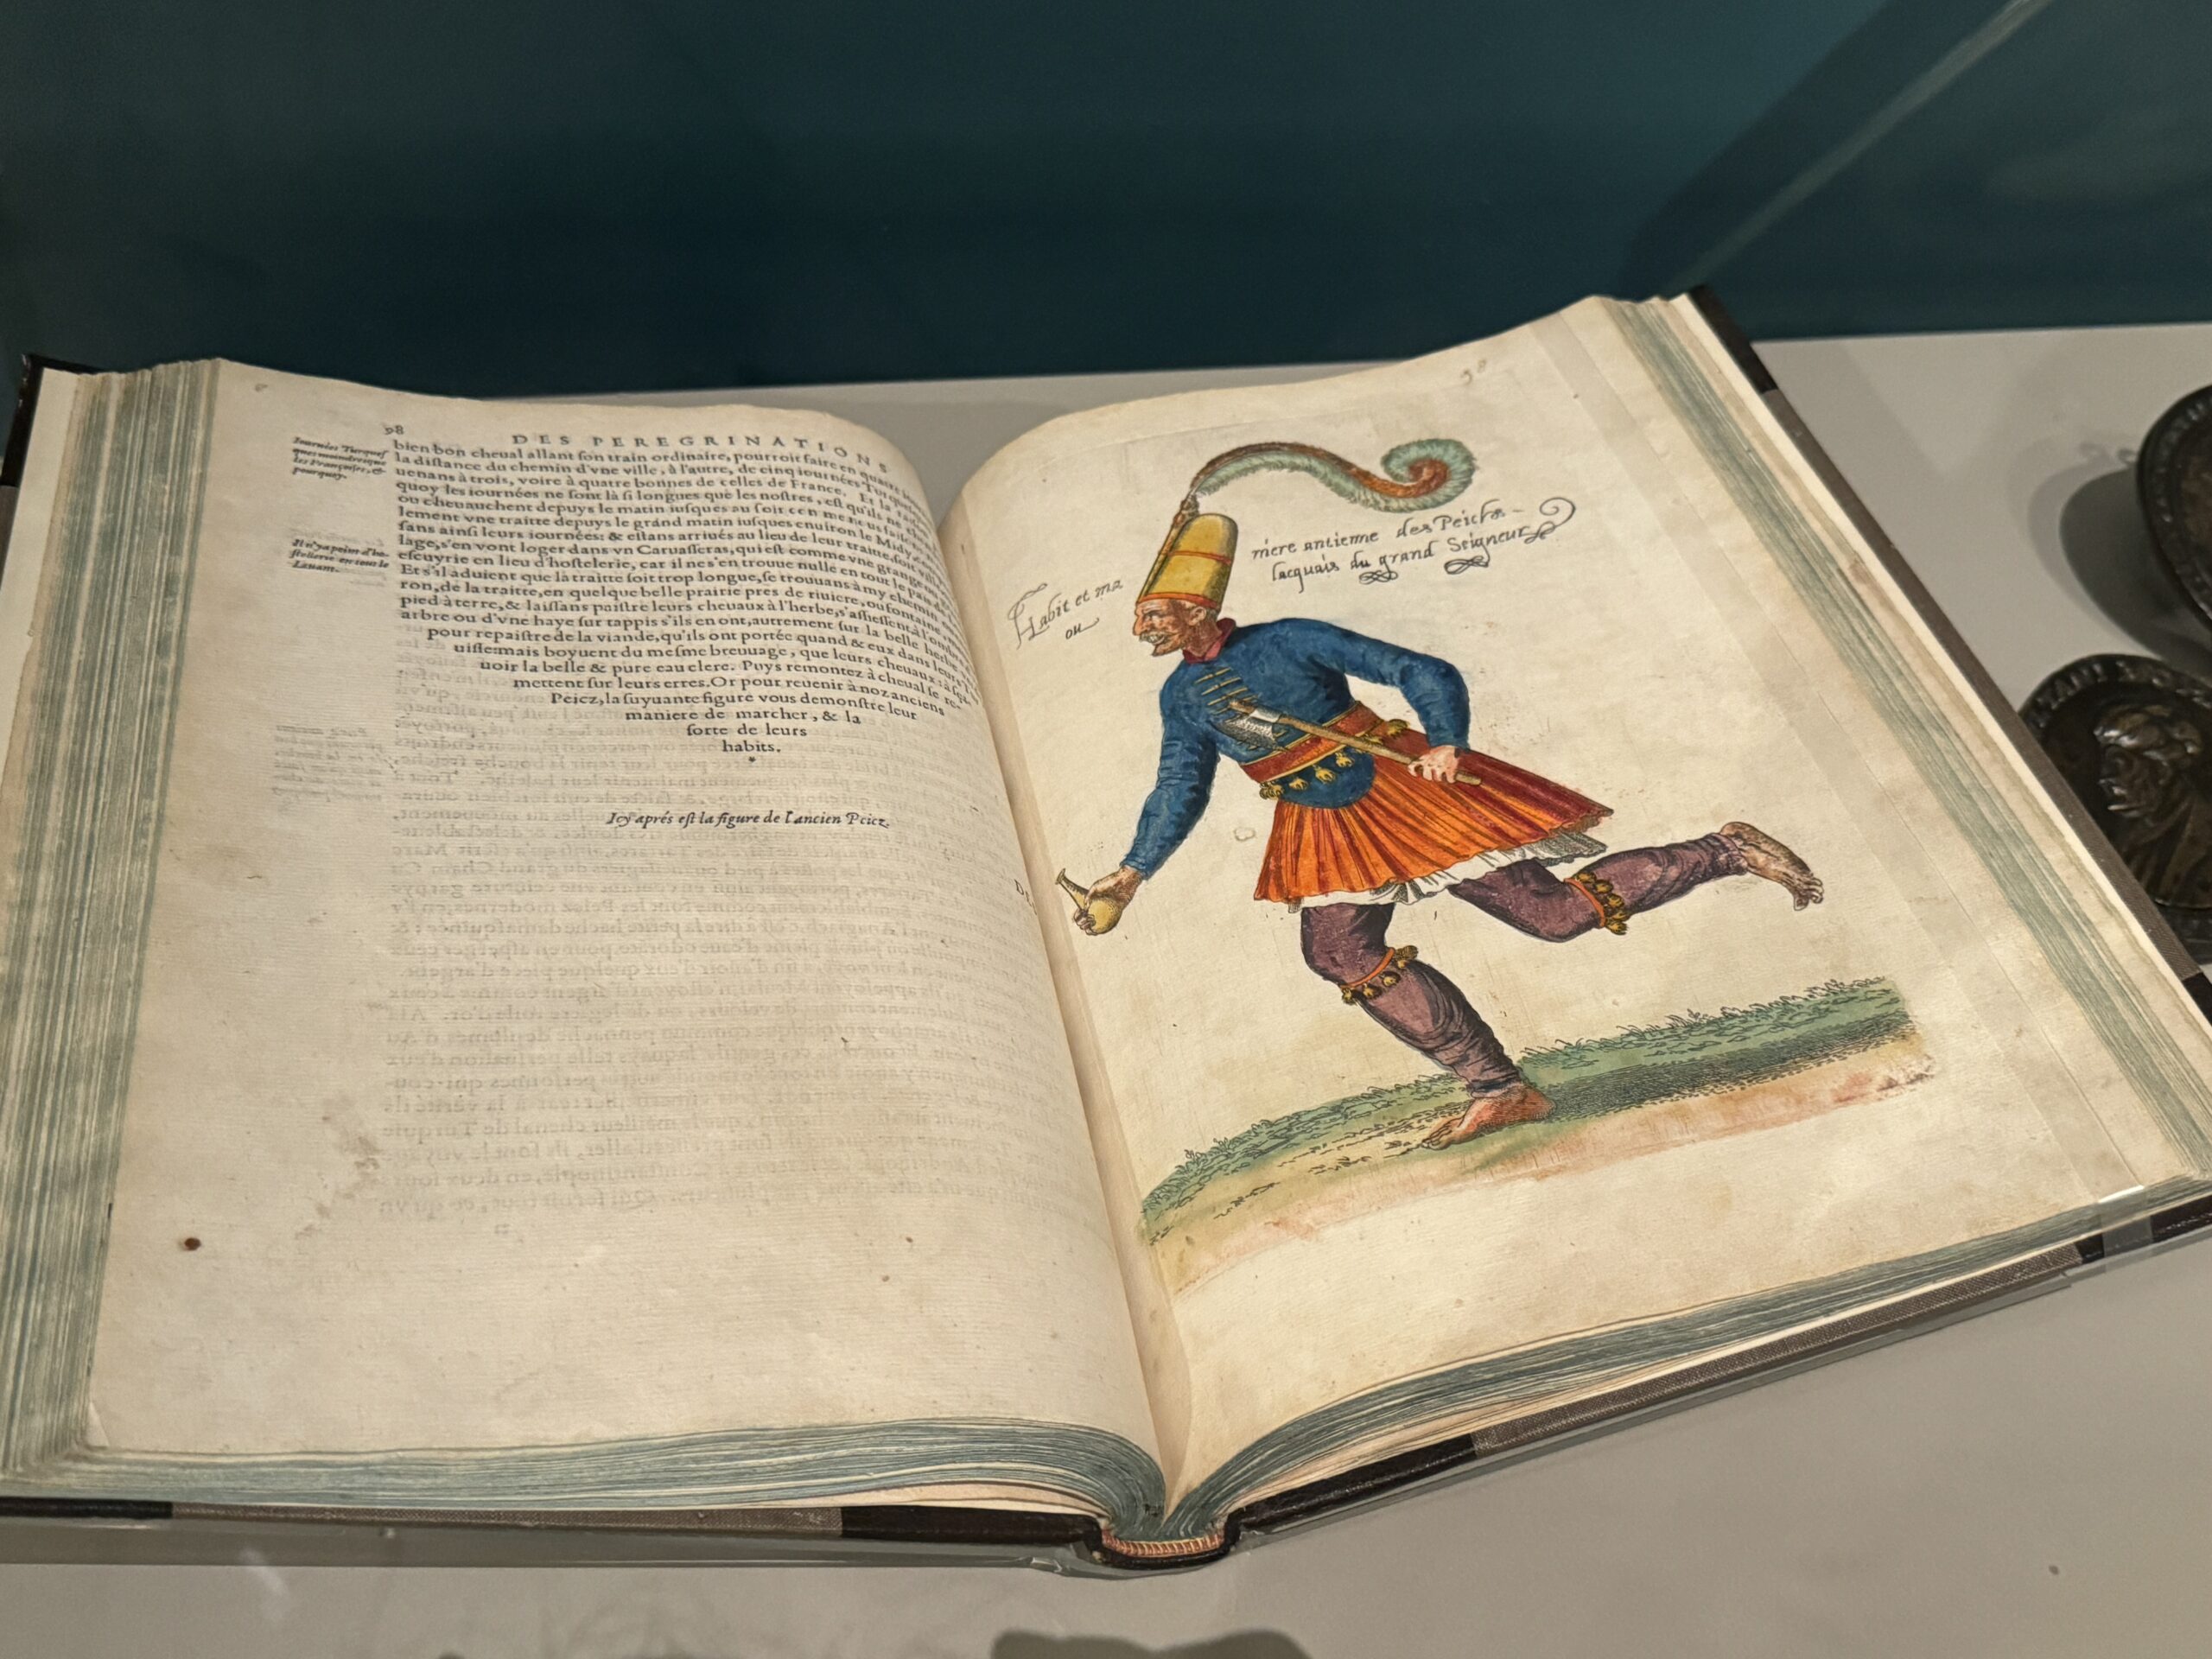 98
DES PEREGRINATIONS
Iournées Turques
ques moindres que
les Françoises, &
pourquoy.
bien bon cheual allant ſon train ordinaire, pourroit faire en quatre
la diſtance du chemin d'vne ville, à l'autre, de cinq iournées Turques
uenans à trois, voire à quatre bonnes de celles de France. Et la raiſon
quoy les iournées ne ſont là ſi longues que les noſtres, eſt qu'ils ne
ou cheuauchent depuys le matin iuſques au ſoir
lement vne traitte depuys le grand matin iuſques enuiron le Midy
ſans ainſi leurs iournées: & eſtans arriués au lieu de leur traitte, ſoit
Il n'y a point d'ho-
ſtelierie en tout le
Leuant.
lage, s'en vont loger dans vn Caruaſſeras, qui eſt comme vne grange
eſcuyrie en lieu d'hoſtelerie, car il ne s'en trouue nulle en tout le païs
Et s'il aduient que la traitte ſoit trop longue, ſe trouuans à my chemin
ron, de la traitte, en quelque belle prairie pres de riuiere, ou fontaine
pied à terre, & laiſſans paiſtre leurs cheuaux à l'herbe, s'aſſieſſent à l'ombre
arbre ou d'vne haye ſur tappis s'ils en ont, autrement ſur la belle herbe
pour repaiſtre de la viande, qu'ils ont portée quand & eux dans leurs
uiſſe: mais boyuent du meſme breuuage, que leurs cheuaux: à ſça-
uoir la belle & pure eau clere. Puys remontez à cheual ſe re-
mettent ſur leurs erres. Or pour reuenir à noz anciens
Peicz, la ſuyuante figure vous demonſtre leur
maniere de marcher, & la
ſorte de leurs
habits.
*
Icy aprés eſt la figure de l'ancien Peicz.
98
Habit et ma
niere antienne des Peichz
ou
lacquais du grand Seigneur